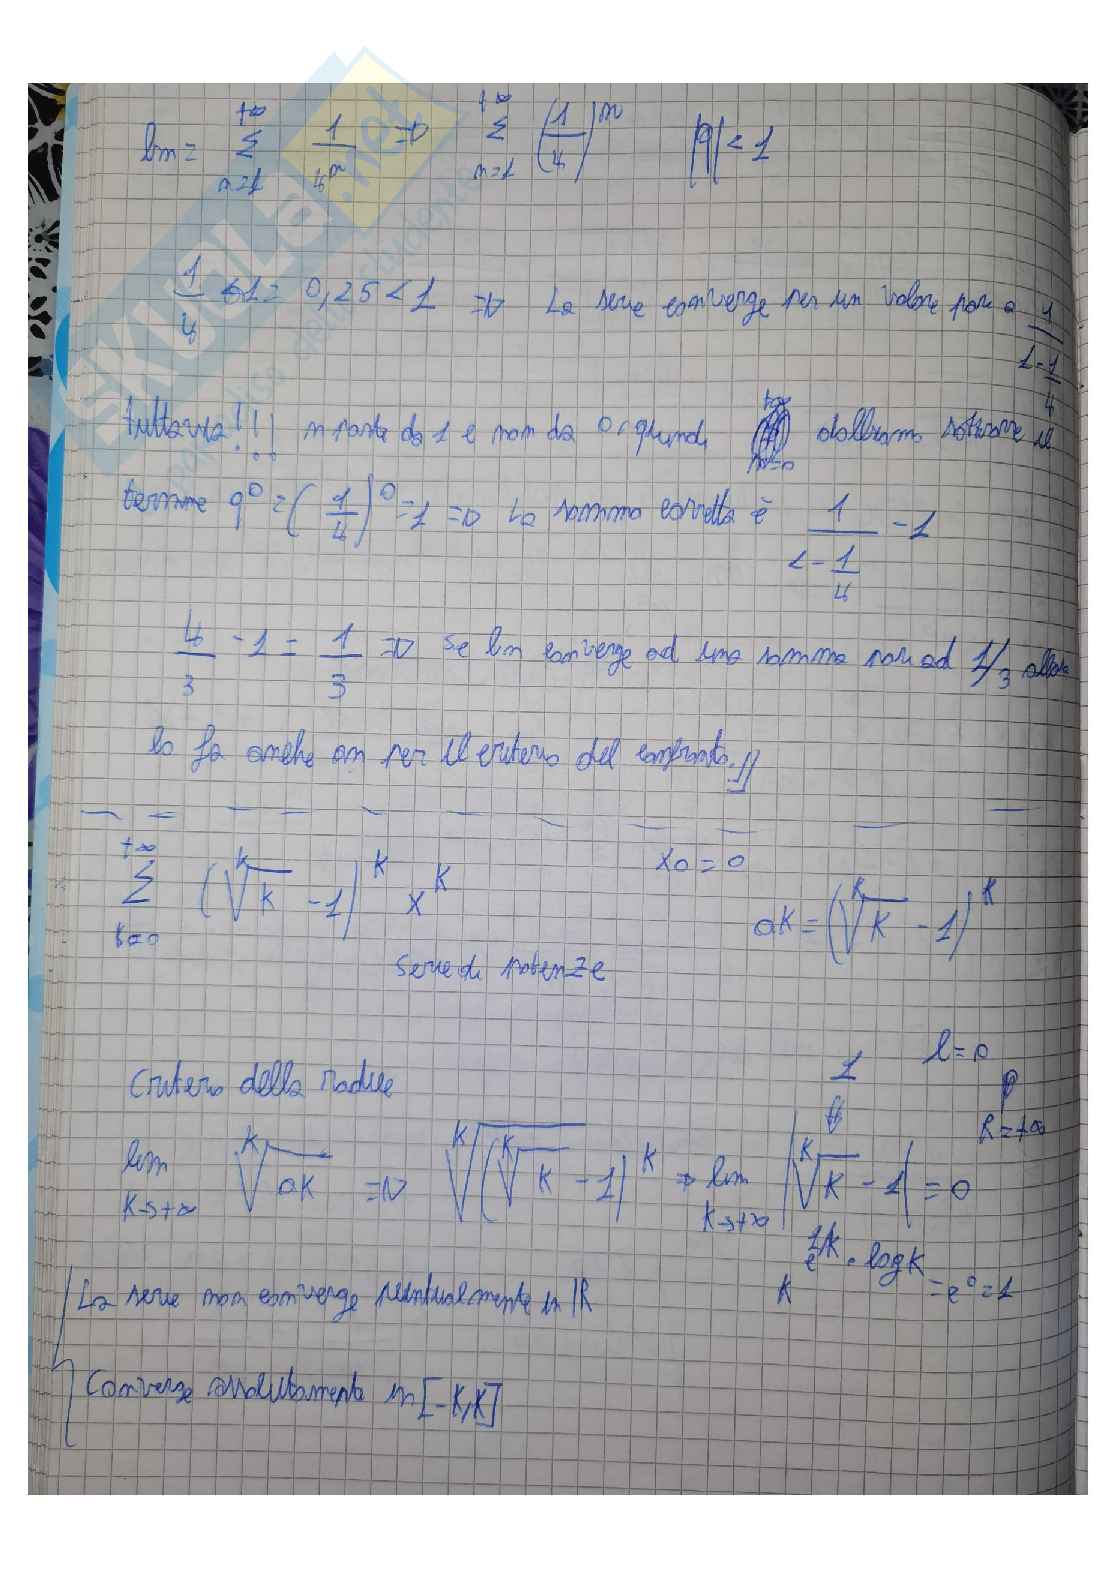 bn = +∞ Σ n=1 1/4^n => +∞ Σ n=1 (1/4)^n |q| < 1
1/4 < 1 = 0,25 < 1 => La serie converge per un valore pari a 1/(1-1/4)
tuttavia!!! n parte da 1 e non da 0, quindi dobbiamo sottrarre il
termine q^0 = (1/4)^0 = 1 => La somma corretta è 1/(1-1/4) - 1
4/3 - 1 = 1/3 => Se bn converge ad una somma pari ad 1/3 allora
lo fa anche an per il criterio del confronto.//
+∞ Σ k=0 (ᵏ√k - 1)^k x^k x0 = 0 ak = (ᵏ√k - 1)^k
Serie di potenze
Criterio della radice 1 l = 0
R = +∞
lim k->+∞ ᵏ√ak => ᵏ√(ᵏ√k - 1)^k => lim k->+∞ |ᵏ√k - 1| = 0
e^1/k · log k = e^0 = 1
K
La serie non converge puntualmente in R
Converge assolutamente in [-K,K]
SKUOLA.net